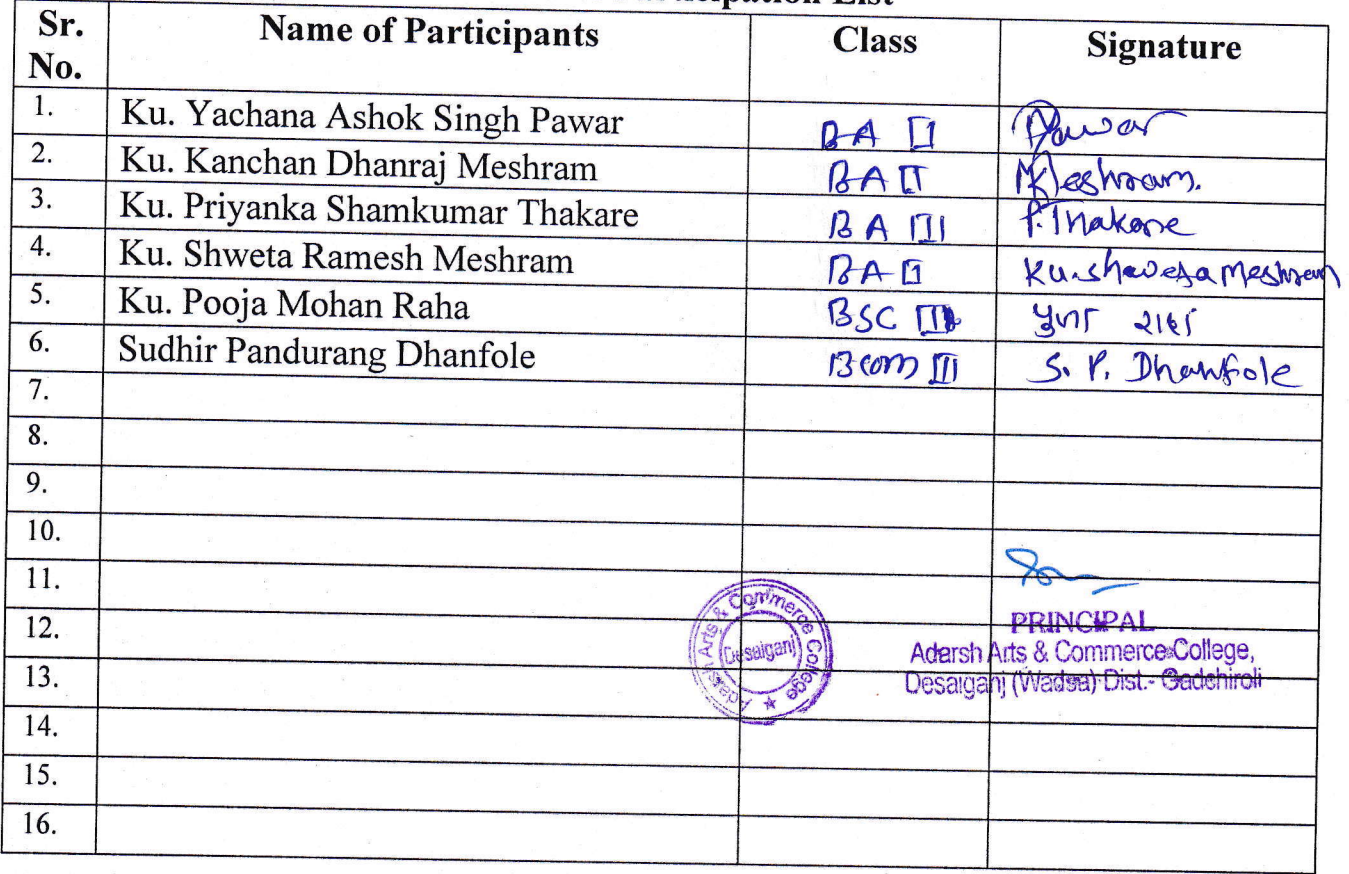 Participation List
Sr. No. Name of Participants Class Signature
1. Ku. Yachana Ashok Singh Pawar BA I Pawar
2. Ku. Kanchan Dhanraj Meshram BA II Meshram.
3. Ku. Priyanka Shamkumar Thakare BA III P. Thakare
4. Ku. Shweta Ramesh Meshram BA I Ku. Shweta Meshram
5. Ku. Pooja Mohan Raha BSC III पुजा राहा
6. Sudhir Pandurang Dhanfole Bcom III S. P. Dhanfole
7.
8.
9.
10.
11.
12.
13.
14.
15.
16.
Adarsh Arts & Commerce College
Desaiganj
PRINCIPAL
Adarsh Arts & Commerce College,
Desaiganj (Wadsa) Dist.- Gadchiroli